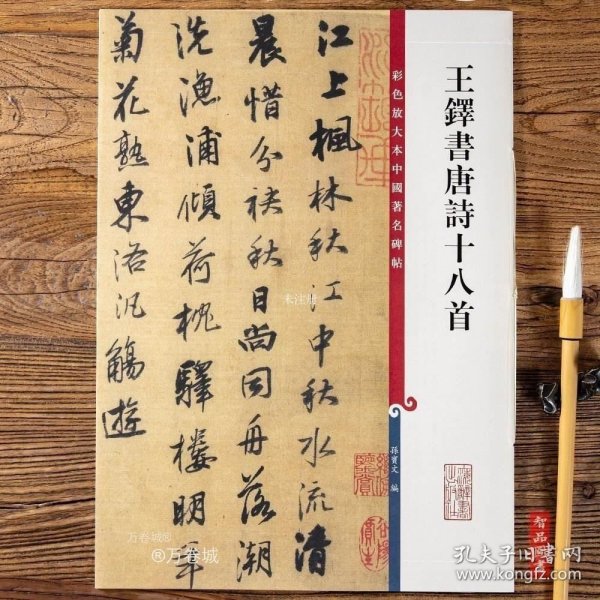 王鐸書唐詩十八首
彩色放大本中國著名碑帖
孫寶文 編
江上楓林秋江中秋水流清
晨惜分袂秋日尚同舟落潮
洗漁浦傾荷枕驛樓明年
菊花熟東洛汎觴遊
万卷城®
®万卷城
孔夫子旧书网
www.kongfz.com